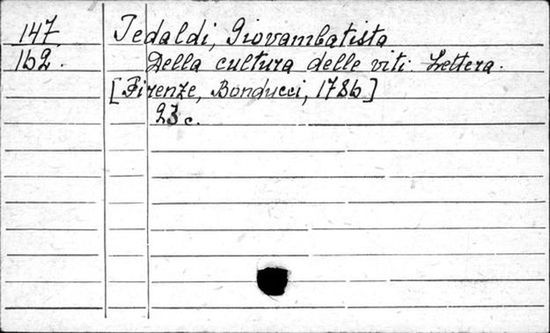 147 Tedaldi, Giovambatista
162. Della cultura delle viti. Lettera.
[Firenze, Bonducci, 1786]
23 c.